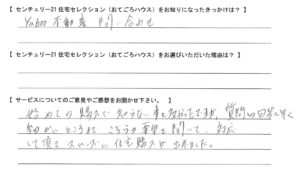 【 センチュリー21 住宅セレクション（おてごろハウス）をお知りになったきっかけは？ 】
Yahoo 不動産 問い合わせ
【 センチュリー21 住宅セレクション（おてごろハウス）をお選びいただいた理由は？ 】
【 サービスについてのご意見やご感想をお聞かせ下さい。 】
始めての購入で 知らない事も多かったですが、質問の回答も早く
細かいところまで こちらの要望を聞いて、対応
して頂き スムーズに住宅購入が出来ました。